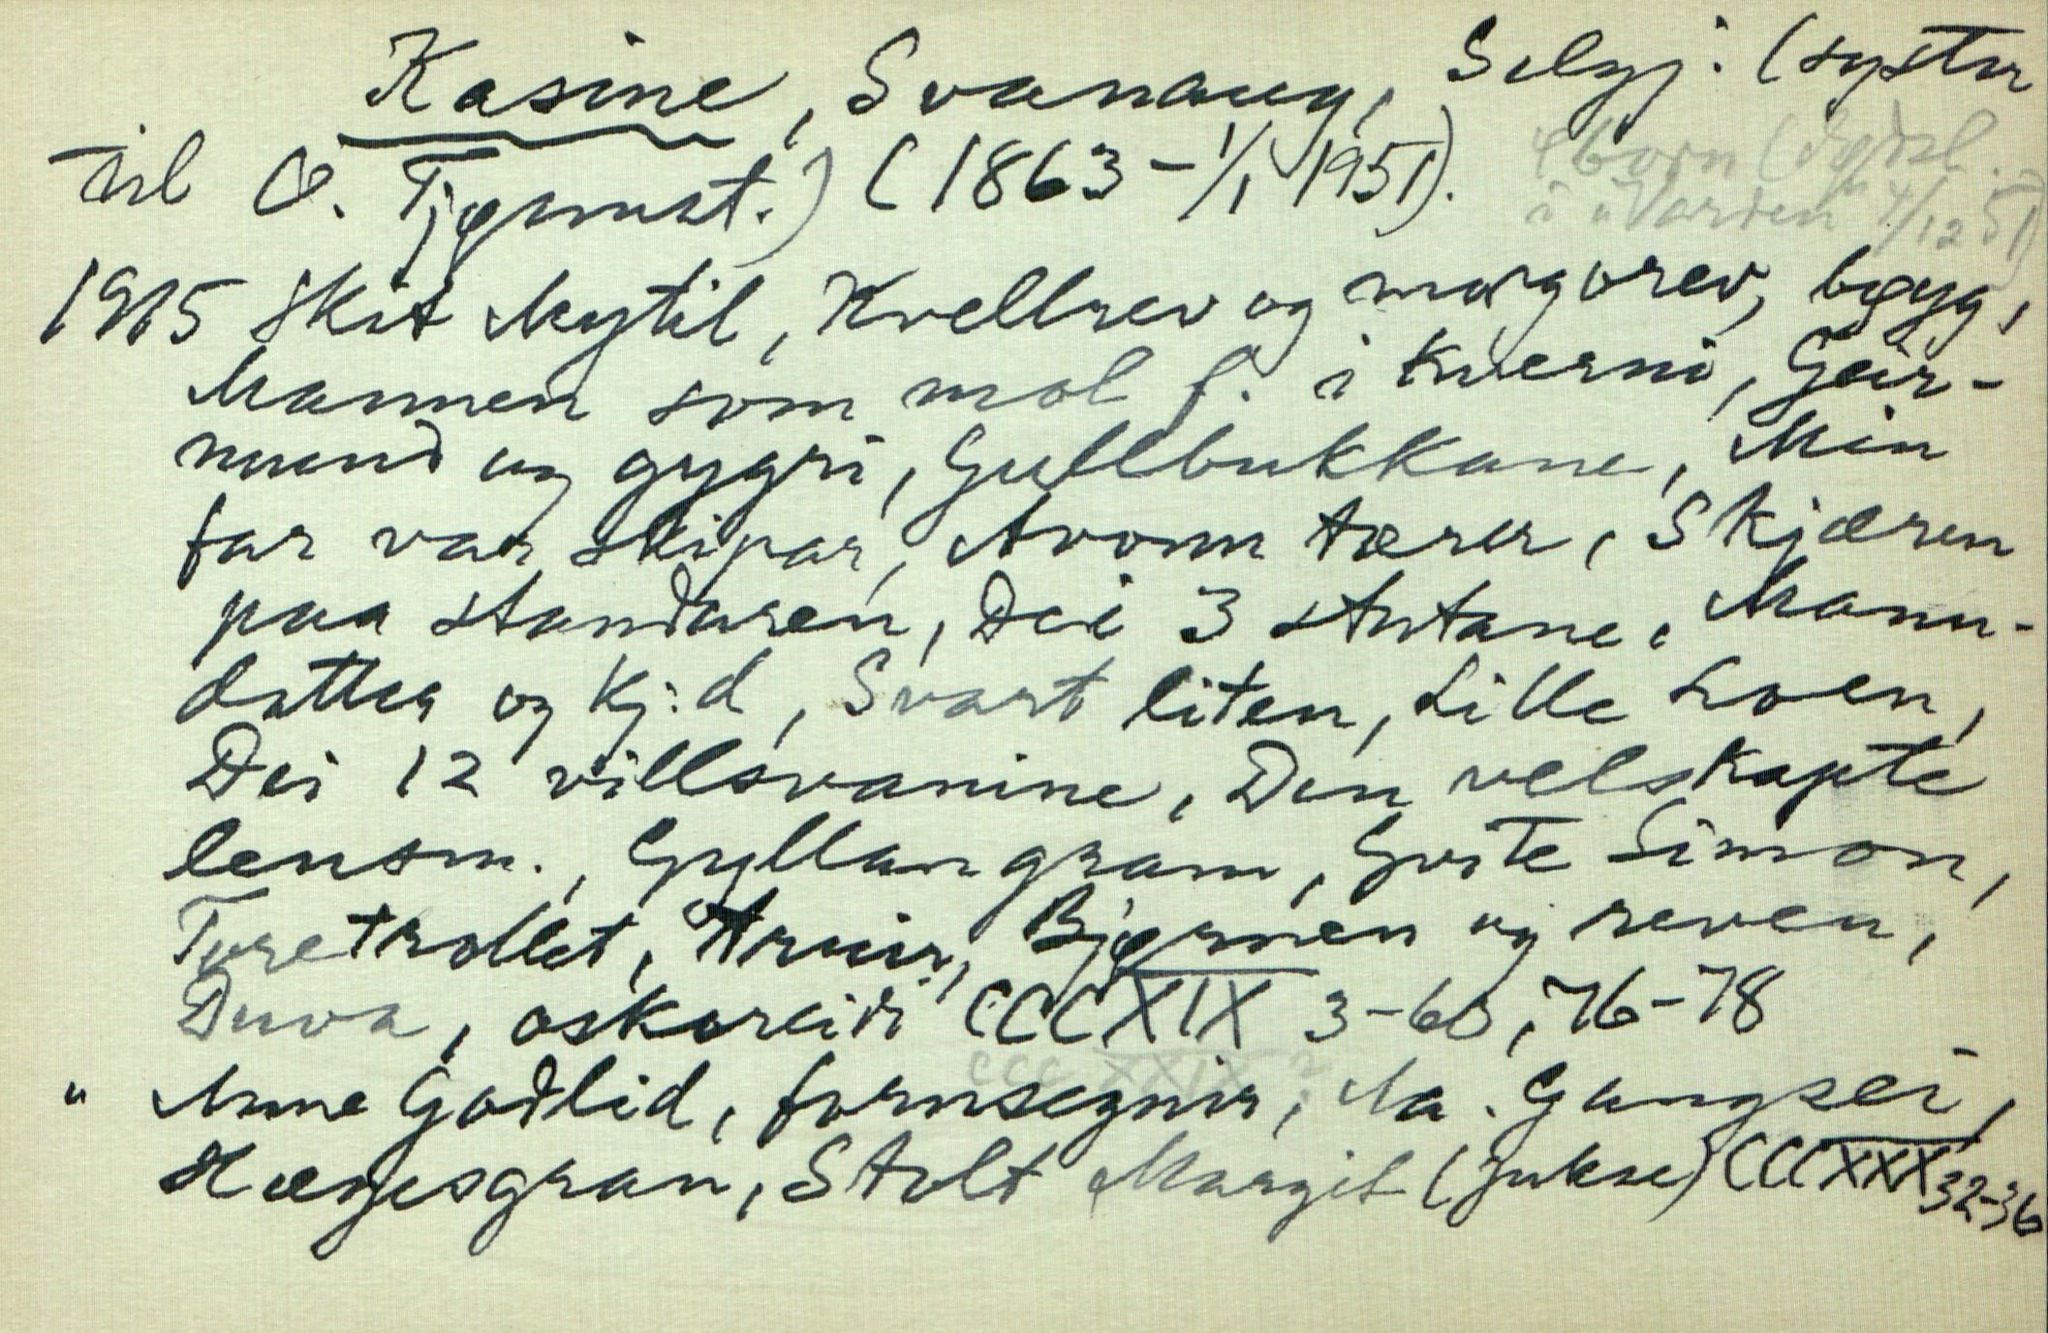 Kasine, Svanaug, Selgj. (syster
til O. Tjønnst.) (1863 – 1/1 1951).
4 born (dødsf.
i "Varden" 4/12 51)
1915 Skit Mytil, Kvellrev og morgorev, bygg,
Mannen som mol f. i kverni, Geir-
mund og gygri, Gullbukkane, Min
far var skipar, Avonn tærer, Skjæren
paa standaren, Dei 3 stutane, Mann-
dotter og kj:d, Svart liten, Lille Loen,
Dei 12 villsvanine, Den velskapte
lensm., Gyllangram, Gvite Simon,
Tyretrollet, truir, Bjørnen og reven,
Duva, oskoreidi CCCXIX 3-60, 76-78
CCC XXIX ?
" Anne Godlid, fornsegnir, Aa. Gangsei,
Hægesgran, Stolt Margit (jukse) CCCXXX 32-36